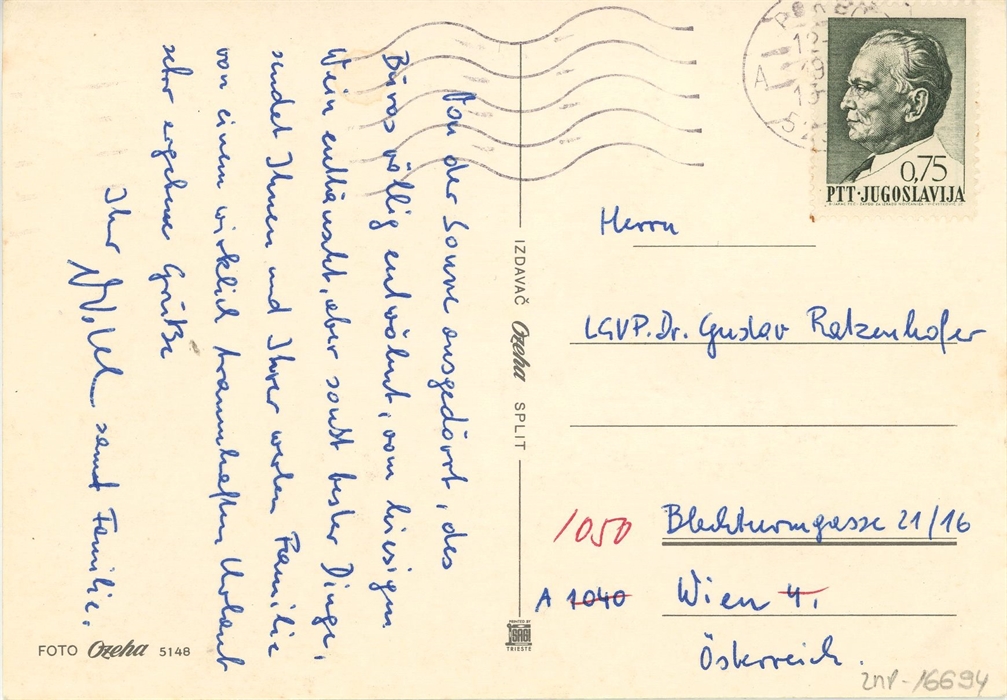 Von der Sonne ausgedörrt, des
Büros völlig entwöhnt, vom hiesigen
Wein enttäuscht, aber sonst bester Dinge,
sendet Ihnen und Ihrer werten Familie
von einem wirklich traumhaften Urlaub
sehr ergebene Grüße
Ihr
samt Familie.
FOTO Ozeha 5148
IZDAVAČ Ozeha SPLIT
PRINTED BY
TRIESTE
A
12
13
0,75
PTT·JUGOSLAVIJA
Herrn
LGVP. Dr. Gustav Ratzenhofer
1050 Blechturmgasse 21/16
A 1040 Wien 4.
Österreich.
ZNP-16694